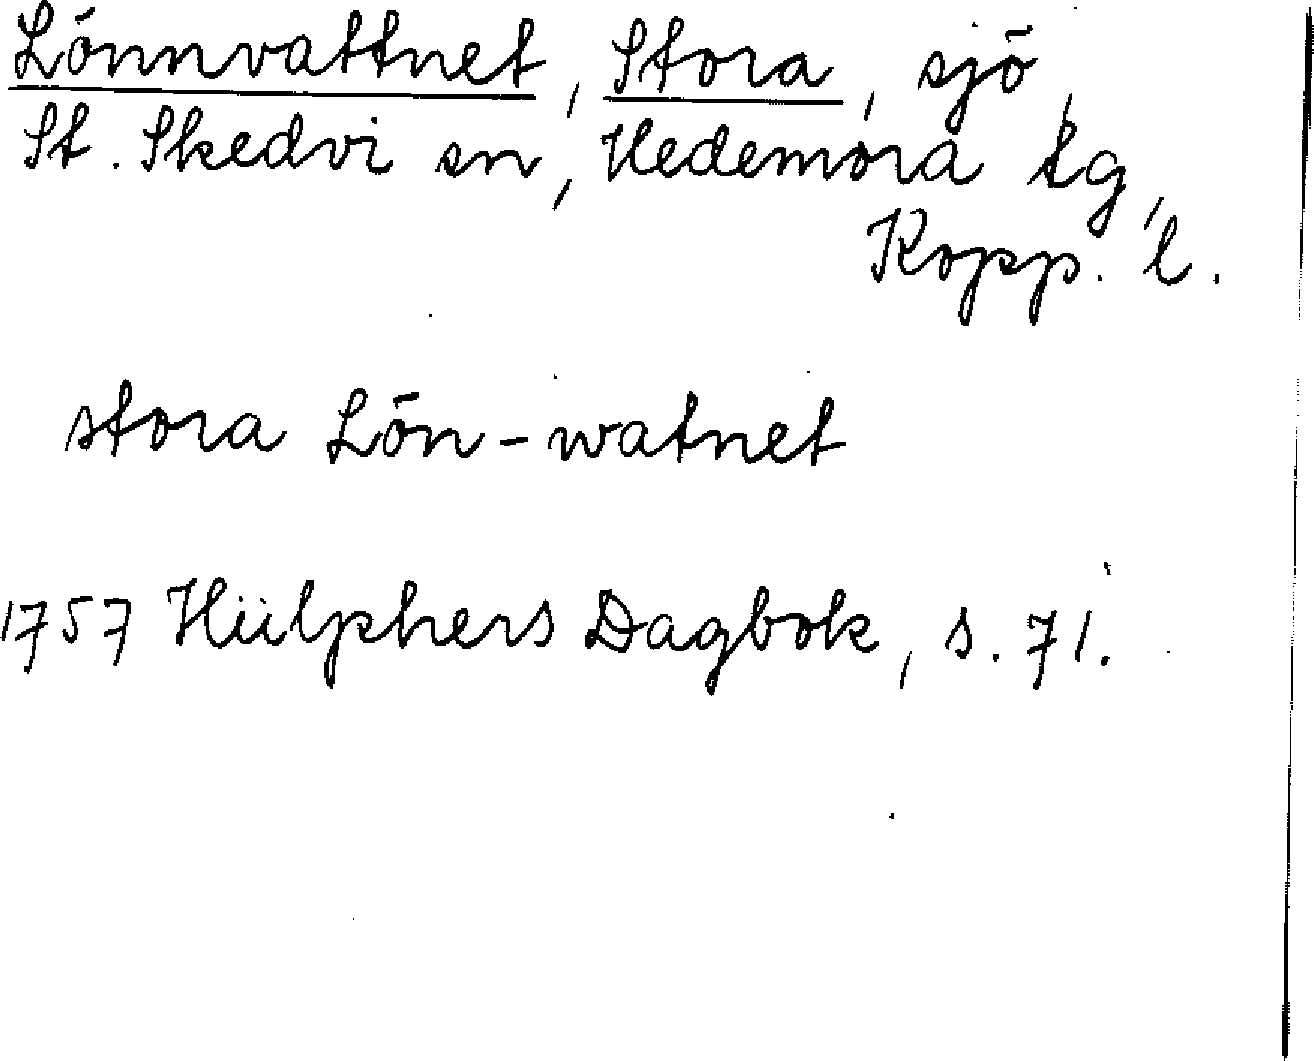 Lönnvattnet, Stora, sjö,
St. Skedvi sn, Hedemora tg,
Kopp. l.
stora Lön-watnet
1757 Hülphers Dagbok, s. 71.